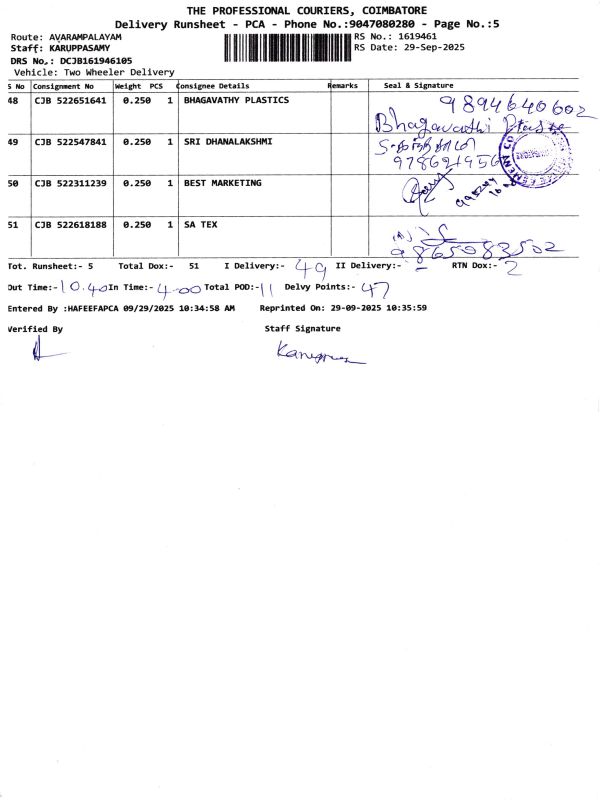 THE PROFESSIONAL COURIERS, COIMBATORE
Delivery Runsheet - PCA - Phone No.:9047080280 - Page No.:5
Route: AVARAMPALAYAM
RS No.: 1619461
Staff: KARUPPASAMY
RS Date: 29-Sep-2025
DRS No.: DCJB161946105
Vehicle: Two Wheeler Delivery
S No Consignment No Weight PCS Consignee Details Remarks Seal & Signature
48 CJB 522651641 0.250 1 BHAGAVATHY PLASTICS 9894640602
Bhagavathi
49 CJB 522547841 0.250 1 SRI DHANALAKSHMI
50 CJB 522311239 0.250 1 BEST MARKETING
51 CJB 522618188 0.250 1 SA TEX
9865083502
Tot. Runsheet:- 5 Total Dox:- 51 I Delivery:- 49 II Delivery:- - RTN Dox:- 2
Out Time:- 10.40 In Time:- 4.00 Total POD:- 11 Delvy Points:- 47
Entered By :HAFEEFAPCA 09/29/2025 10:34:58 AM Reprinted On: 29-09-2025 10:35:59
Verified By Staff Signature